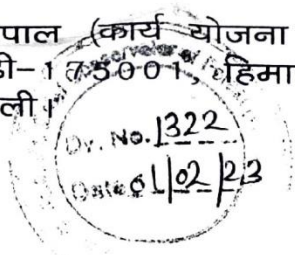 पाल (कार्य योजना
डी-175001, हिमा
ली।
Dy. No. 1322
Date 01/02/23